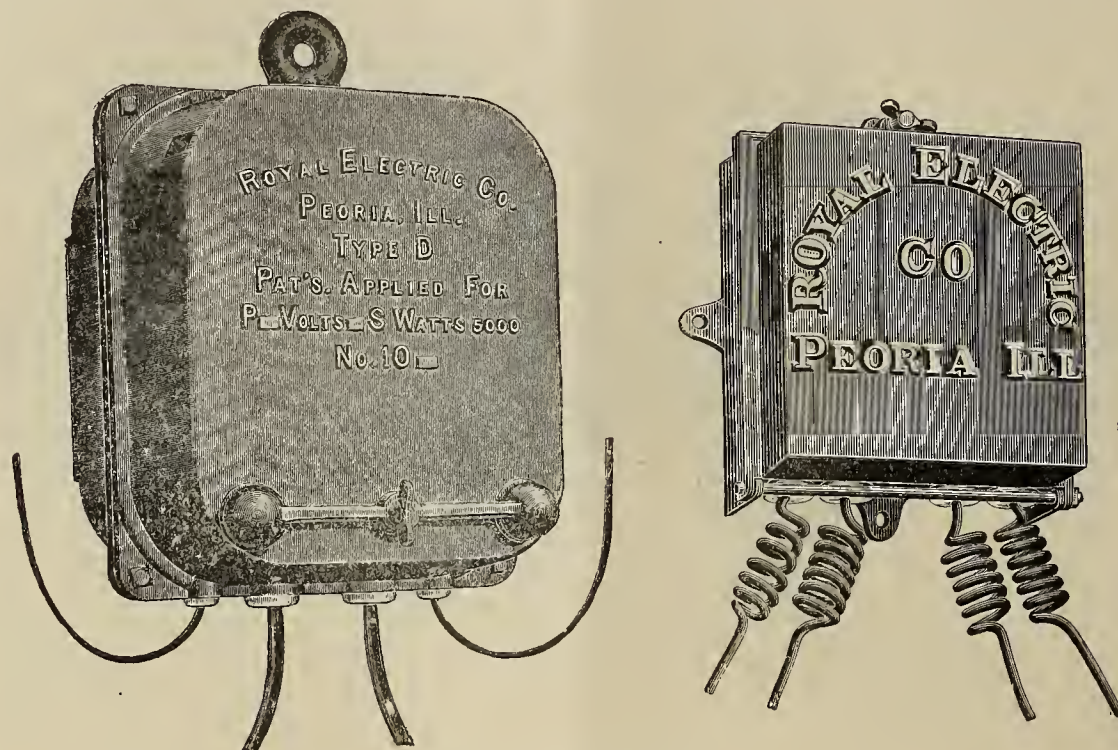 ROYAL ELECTRIC CO.
PEORIA, ILL.
TYPE D
PAT'S. APPLIED FOR
P VOLTS S WATTS 5000
No. 10
ROYAL ELECTRIC
CO
PEORIA ILL